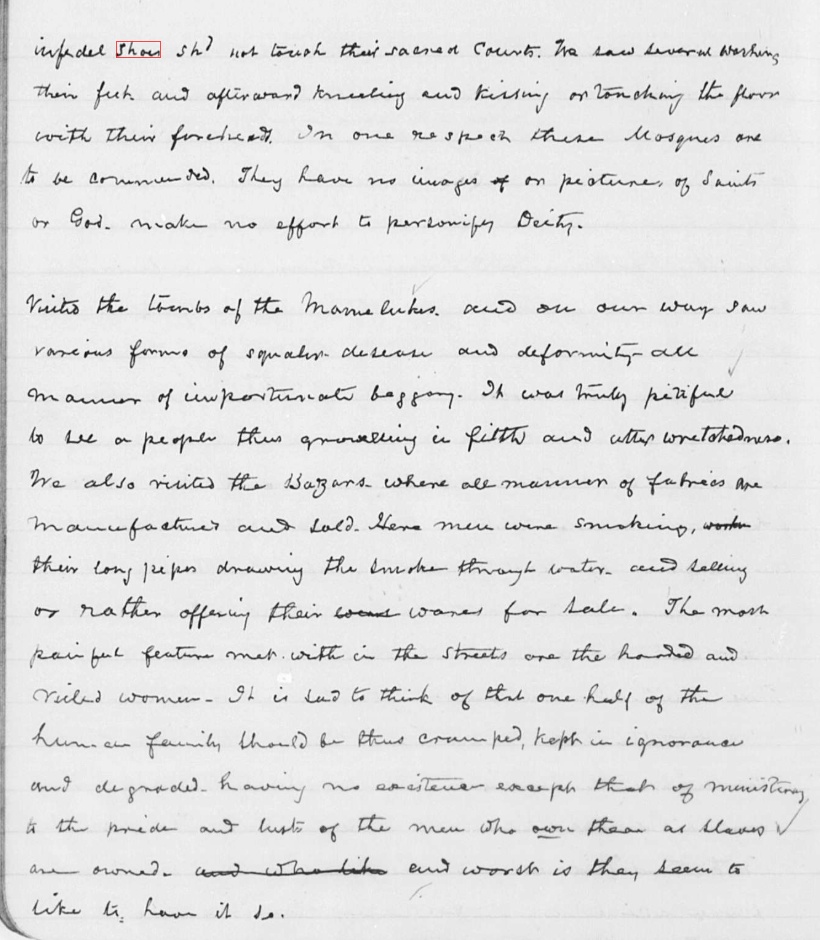 infidel shoes shd not touch their sacred Courts. We saw several washing
their feet and afterward kneeling and kissing or touching the floor
with their forehead. In one respect these Mosques are
to be commended. They have no images of or pictures of Saints
or God. make no effort to personify Deity.
Visited the tombs of the Mamelukes. and on our way saw
various forms of squalor disease and deformity - all
manner of importunate beggary. It was truly pitiful
to see a people thus growelling in filth and utter wretchedness.
We also visited the Bazars - where all manner of fabrics are
manufactured and sold. Here men were smoking, work
their long pipes drawing the smoke through water - and selling
or rather offering their wears wares for sale. The most
painful feature met with in the streets are the hooded and
veiled women - It is sad to think of that one half of the
human family should be thus cramped, kept in ignorance
and degraded - having no existence except that of ministering
to the pride and lusts of the men who own them as slaves
are owned - and who like and worst is they seem to
like to have it so.